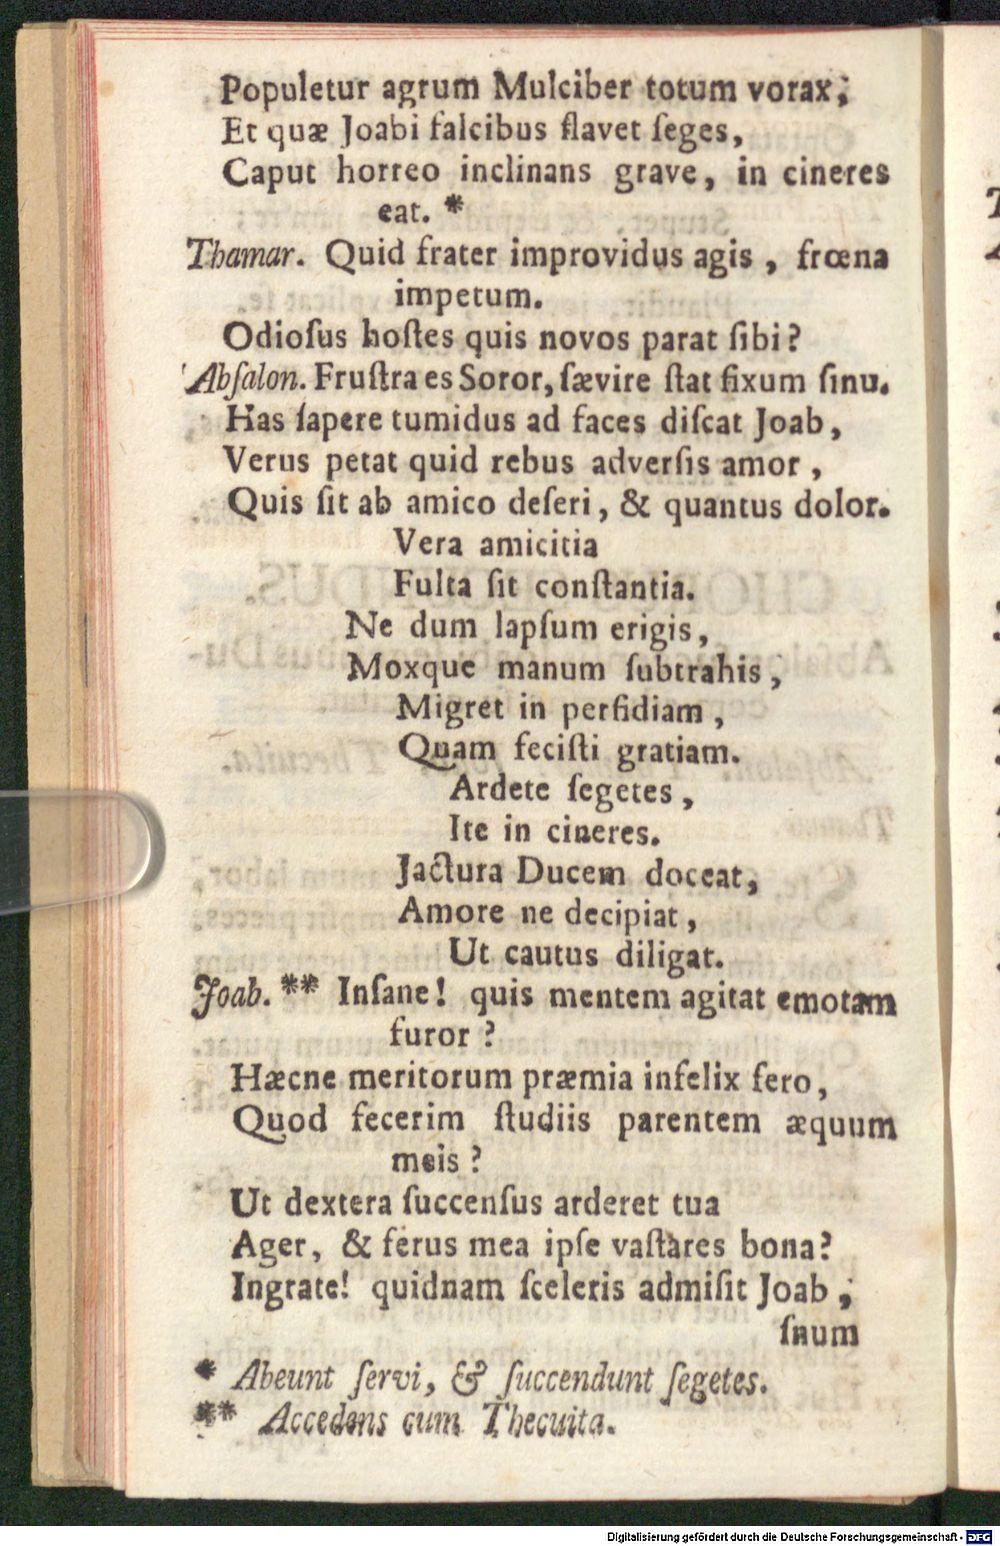 Populetur agrum Mulciber totum vorax;
Et quæ Joabi falcibus flavet ſeges,
Caput horreo inclinans grave, in cineres
eat. *
Thamar. Quid frater improvidus agis, frœna
impetum.
Odioſus hoſtes quis novos parat ſibi?
Abſalon. Fruſtra es Soror, ſævire ſtat fixum ſinu.
Has ſapere tumidus ad faces diſcat Joab,
Verus petat quid rebus adverſis amor,
Quis ſit ab amico deſeri, & quantus dolor.
Vera amicitia
Fulta ſit conſtantia.
Ne dum lapſum erigis,
Moxque manum ſubtrahis,
Migret in perfidiam,
Quam feciſti gratiam.
Ardete ſegetes,
Ite in cineres.
Jactura Ducem doceat,
Amore ne decipiat,
Ut cautus diligat.
Joab. ** Inſane! quis mentem agitat emotam
furor?
Hæcne meritorum præmia infelix fero,
Quod fecerim ſtudiis parentem æquum
meis?
Ut dextera ſuccenſus arderet tua
Ager, & ferus mea ipſe vaſtares bona?
Ingrate! quidnam ſceleris admiſit Joab;
ſuum
* Abeunt ſervi, & ſuccendunt ſegetes.
** Accedens cum Thecuita.
Digitalisierung gefördert durch die Deutsche Forschungsgemeinschaft - DFG